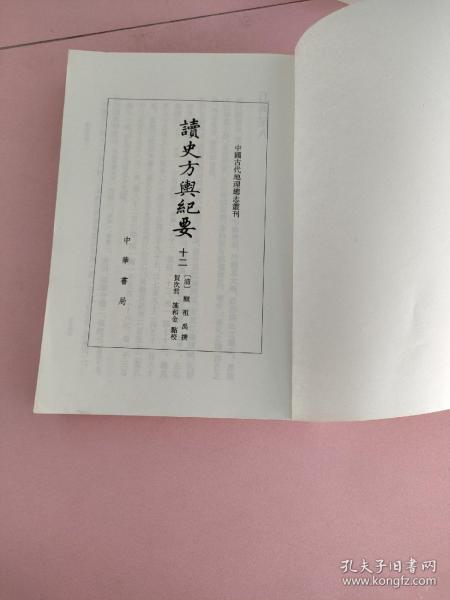 中國古代地理總志叢刊
讀史方輿紀要
十二
〔清〕顧祖禹撰
賀次君 施和金 點校
中華書局
孔夫子旧书网
www.kongfz.com